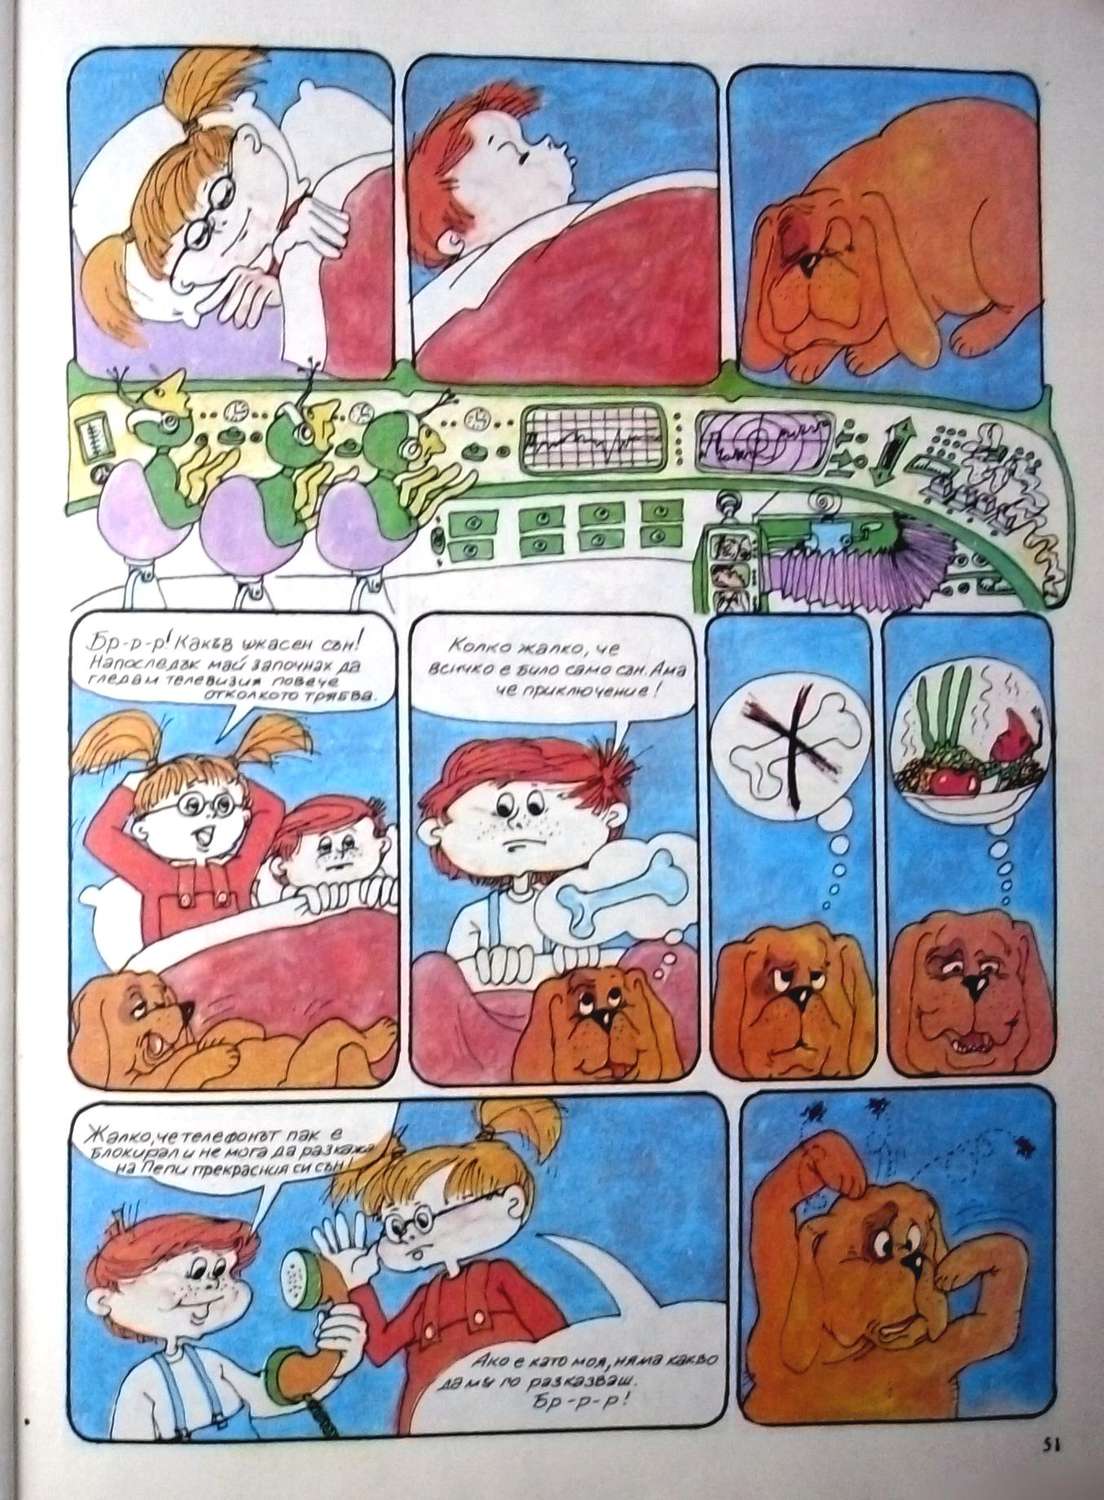 Бр-р-р! Какъв ужасен сън!
Напоследък май започнах да
гледам телевизия повече
отколкото трябва.
Колко жалко, че
всичко е било само сън. Ама
че приключение!
Жалко, че телефонът пак е
блокирал и не мога да разкажа
на Пепи прекрасния си сън!
Ако е като моя, няма какво
да му го разказваш.
Бр-р-р!
51